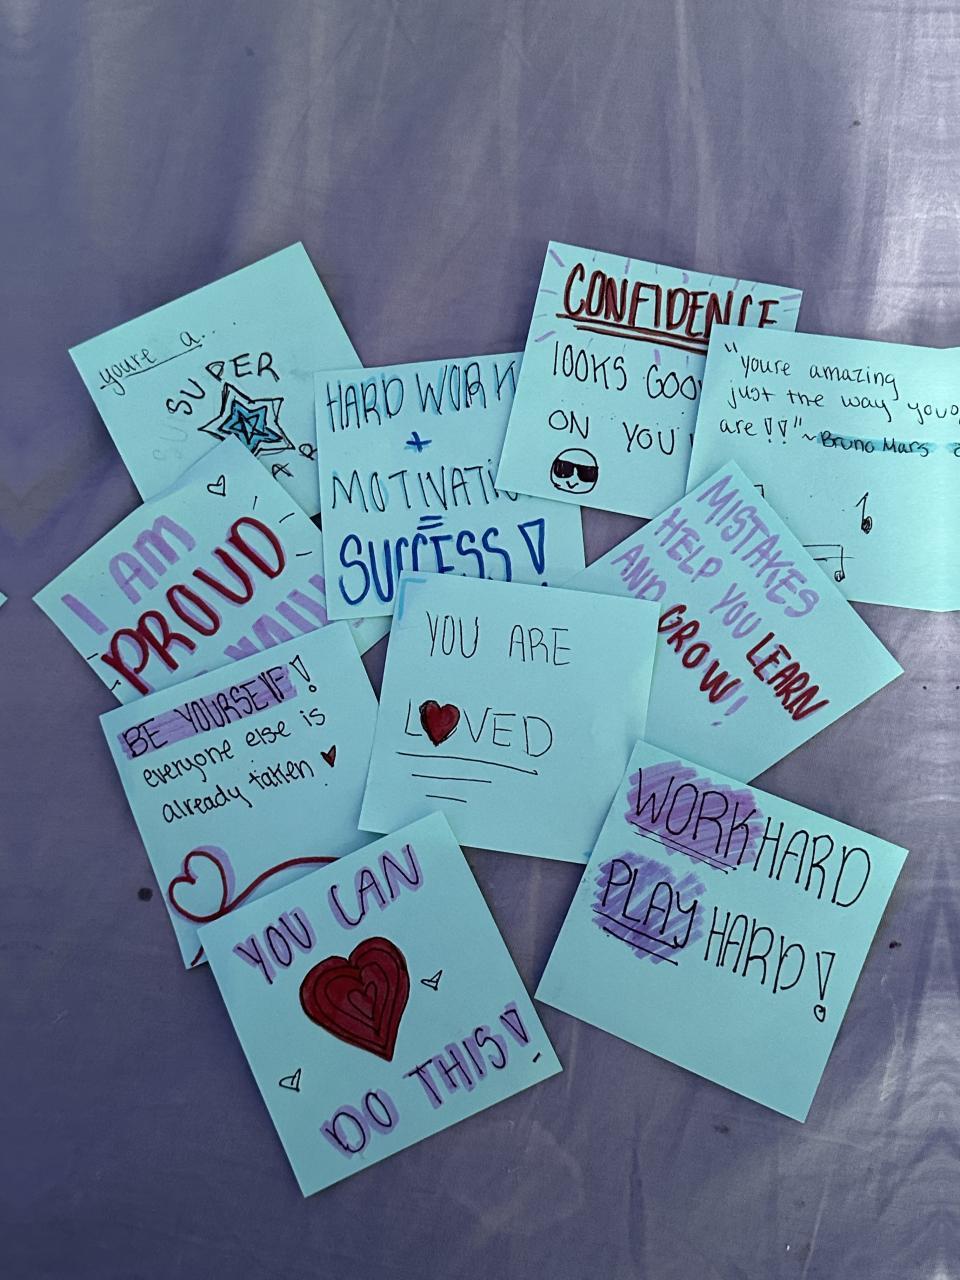 youre a...
SUPER
HARD WORK
+
MOTIVATI
=
SUCCESS!
CONFIDENCE
lOOKS GOO
ON YOU
"youre amazing
just the way you
are!!" ~Bruno Mars
I AM
PROUD
MISTAKES
HELP YOU LEARN
AND GROW!
BE YOURSElF!
everyone else is
already taken
YOU ARE
LOVED
WORK HARD
PLAY HARD!
YOU CAN
DO THIS!